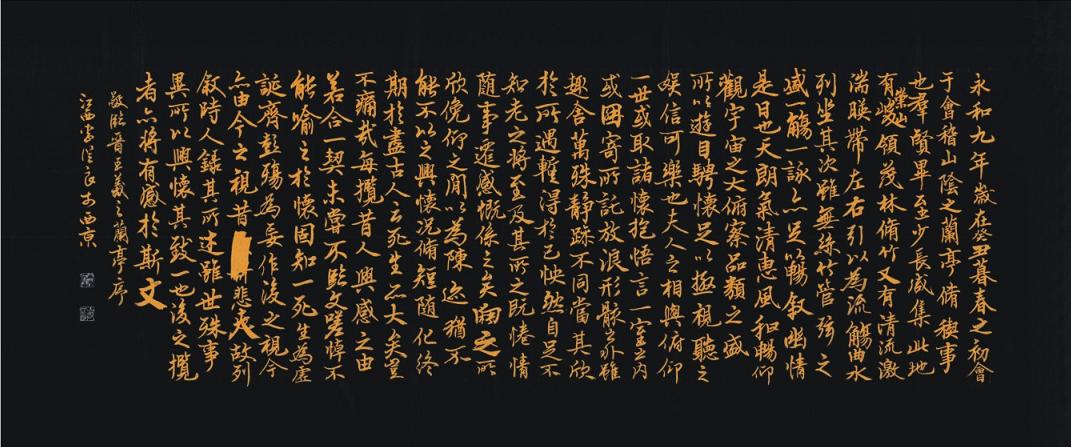 永和九年歲在癸丑暮春之初會
于會稽山陰之蘭亭脩禊事
也羣賢畢至少長咸集此地
有崇山峻領茂林脩竹又有清流激
湍暎帶左右引以為流觴曲水
列坐其次雖無絲竹管弦之
盛一觴一詠亦足以暢敘幽情
是日也天朗氣清惠風和暢仰
觀宇宙之大俯察品類之盛
所以遊目騁懷足以極視聽之
娛信可樂也夫人之相與俯仰
一世或取諸懷抱悟言一室之內
或因寄所託放浪形骸之外雖
趣舍萬殊靜躁不同當其欣
於所遇暫得於己怏然自足不
知老之將至及其所之既惓情
隨事遷感慨係之矣向之所
欣俛仰之間以為陳迹猶不
能不以之興懷況脩短隨化終
期於盡古人云死生亦大矣豈
不痛哉每攬昔人興感之由
若合一契未嘗不臨文嗟悼不
能喻之於懷固知一死生為虛
誕齊彭殤為妄作後之視今
亦由今之視昔悲夫故列
敘時人錄其所述雖世殊事
異所以興懷其致一也後之攬
者亦將有感於斯文
敬臨晉王羲之蘭亭序
於西京